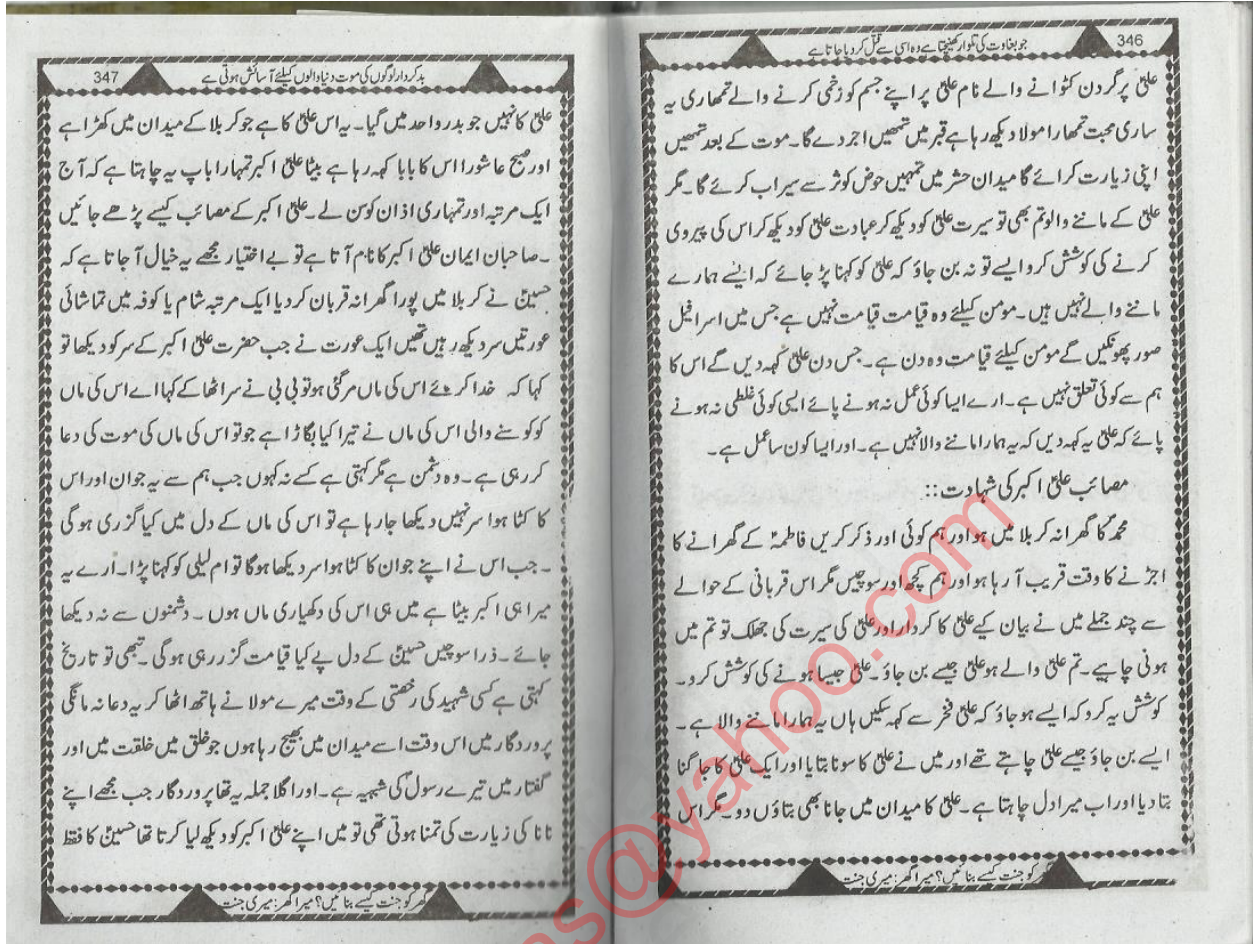 346
جو بغاوت کی تلوار کھینچتا ہے وہ اسی سے قتل کر دیا جاتا ہے
علیؑ پر گردن کٹوانے والے نام علیؑ پر اپنے جسم کو زخمی کرنے والے تمھاری یہ
ساری محبت تمھارا مولا دیکھ رہا ہے قبر میں تمھیں اجر دے گا۔ موت کے بعد تمھیں
اپنی زیارت کرائے گا میدان حشر میں تمہیں حوض کوثر سے سیراب کرئے گا۔ مگر
علیؑ کے ماننے والو تم بھی تو سیرت علیؑ کو دیکھ کر عبادت علیؑ کو دیکھ کر اس کی پیروی
کرنے کی کوشش کرو ایسے تو نہ بن جاؤ کہ علیؑ کو کہنا پڑ جائے کہ ایسے ہمارے
ماننے والے نہیں ہیں۔ مومن کیلئے وہ قیامت قیامت نہیں ہے جس میں اسرافیل
صور پھونکیں گے مومن کیلئے قیامت وہ دن ہے۔ جس دن علیؑ کہہ دیں گے اس کا
ہم سے کوئی تعلق نہیں ہے۔ ارے ایسا کوئی عمل نہ ہونے پائے ایسی کوئی غلطی نہ ہونے
پائے کہ علیؑ یہ کہہ دیں کہ یہ ہمارا ماننے والا نہیں ہے۔ اور ایسا کون سا عمل ہے۔
مصائب علیؑ اکبر کی شہادت::
محمدؐ کا گھرانہ کربلا میں ہو اور ہم کوئی اور ذکر کریں فاطمہؑ کے گھرانے کا
اجڑنے کا وقت قریب آ رہا ہو اور ہم کچھ اور سوچیں مگر اس قربانی کے حوالے
سے چند جملے میں نے بیان کیے علیؑ کا کردار اور علیؑ کی سیرت کی جھلک تو تم میں
ہونی چاہیے۔ تم علیؑ والے ہو علیؑ جیسے بن جاؤ۔ علیؑ جیسا ہونے کی کوشش کرو۔
کوشش یہ کرو کہ ایسے ہو جاؤ کہ علیؑ فخر سے کہہ سکیں ہاں یہ ہمارا ماننے والا ہے۔
ایسے بن جاؤ جیسے علیؑ چاہتے تھے اور میں نے علیؑ کا سونا بتایا اور ایک علیؑ کا جاگنا
بتا دیا اور اب میرا دل چاہتا ہے۔ علیؑ کا میدان میں جانا بھی بتاؤں دو۔ مگر اس
گھر کو جنت کیسے بنائیں؟ میرا گھر: میری جنت
347
بدکردار لوگوں کی موت دنیا والوں کیلئے آسائش ہوتی ہے
علیؑ کا نہیں جو بدر و احد میں گیا۔ یہ اس علیؑ کا ہے جو کربلا کے میدان میں کھڑا ہے
اور صبح عاشورا اس کا بابا کہہ رہا ہے بیٹا علیؑ اکبر تمہارا باپ یہ چاہتا ہے کہ آج
ایک مرتبہ اور تمہاری اذان کو سن لے۔ علیؑ اکبر کے مصائب کیسے پڑھے جائیں
۔ صاحبان ایمان علیؑ اکبر کا نام آتا ہے تو بے اختیار مجھے یہ خیال آ جاتا ہے کہ
حسینؑ نے کربلا میں پورا گھرانہ قربان کر دیا ایک مرتبہ شام یا کوفہ میں تماشائی
عورتیں سر دیکھ رہیں تھیں ایک عورت نے جب حضرت علیؑ اکبر کے سر کو دیکھا تو
کہا کہ خدا کرئے اس کی ماں مر گئی ہو تو بی بی نے سر اٹھا کے کہا اے اس کی ماں
کو کوسنے والی اس کی ماں نے تیرا کیا بگاڑا ہے جو تو اس کی ماں کی موت کی دعا
کر رہی ہے۔ وہ دشمن ہے مگر کہتی ہے کسے نہ کہوں جب ہم سے یہ جوان اور اس
کا کٹا ہوا سر نہیں دیکھا جا رہا ہے تو اس کی ماں کے دل میں کیا گزری ہو گی
۔ جب اس نے اپنے جوان کا کٹا ہوا سر دیکھا ہو گا تو ام لیلی کو کہنا پڑا۔ ارے یہ
میرا ہی اکبر بیٹا ہے میں ہی اس کی دکھیاری ماں ہوں۔ دشمنوں سے نہ دیکھا
جائے۔ ذرا سوچیں حسینؑ کے دل پے کیا قیامت گزر رہی ہو گی۔ تبھی تو تاریخ
کہتی ہے کسی شہید کی رخصتی کے وقت میرے مولا نے ہاتھ اٹھا کر یہ دعا نہ مانگی
پروردگار میں اس وقت اسے میدان میں بھیج رہا ہوں جو خلق میں خلقت میں اور
گفتار میں تیرے رسولؐ کی شبیہ ہے۔ اور اگلا جملہ یہ تھا پروردگار جب مجھے اپنے
نانا کی زیارت کی تمنا ہوتی تھی تو میں اپنے علیؑ اکبر کو دیکھ لیا کرتا تھا حسینؑ کا فقط
گھر کو جنت کیسے بنائیں؟ میرا گھر: میری جنت
es@yahoo.com